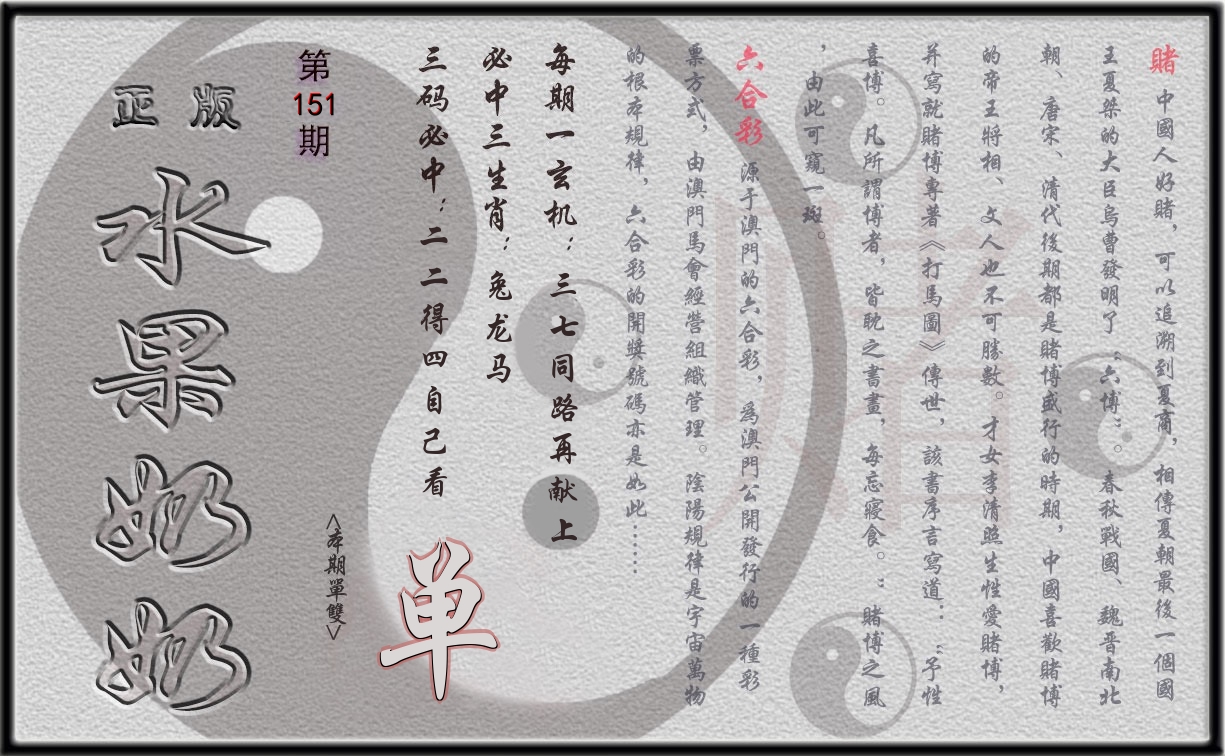 賭 中國人好賭，可以追溯到夏商，相傳夏朝最後一個國
王夏桀的大臣烏曹發明了“六博”。春秋戰國、魏晉南北
朝、唐宋、清代後期都是賭博盛行的時期，中國喜歡賭博
的帝王將相、文人也不可勝數。才女李清照生性愛賭博，
并寫就賭博專著《打馬圖》傳世，該書序言寫道：“予性
喜博。凡所謂博者，皆耽之書畫，每忘寢食。：賭博之風
，由此可窺一斑。
六合彩 源于澳門的六合彩，為澳門公開發行的一種彩
票方式，由澳門馬會經營組織管理。陰陽規律是宇宙萬物
的根本規律，六合彩的開獎號碼亦是如此……
每期一玄机：三七同路再献上
必中三生肖：兔龙马
三码必中：二二得四自己看
单
<本期單雙>
第
151
期
正版
水果奶奶
賭